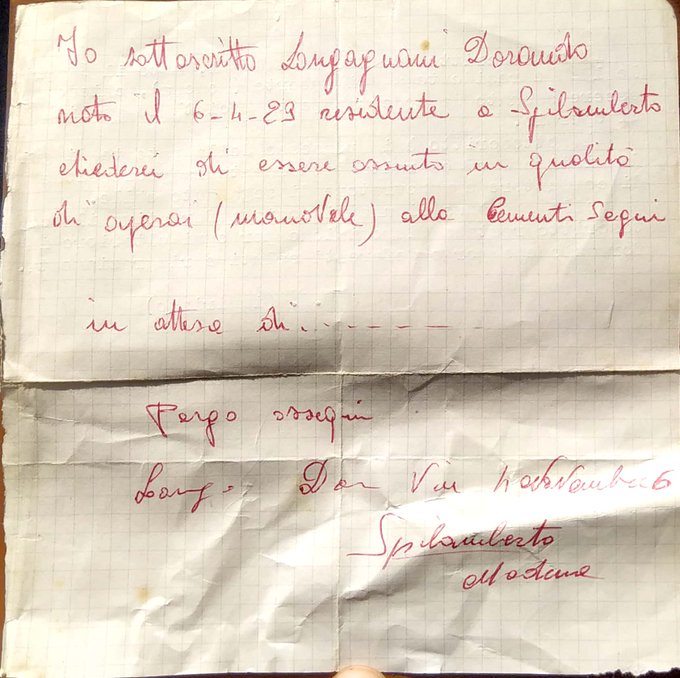 Io sottoscritto Longagnani Dorando
nato il 6-4-29 residente a Spilamberto
chiederei di essere assunto in qualità
di operai (manovale) alla Cementi Segni
in attesa di..........
Porgo ossequi
Long. Dor Via
Spilamberto
Modena